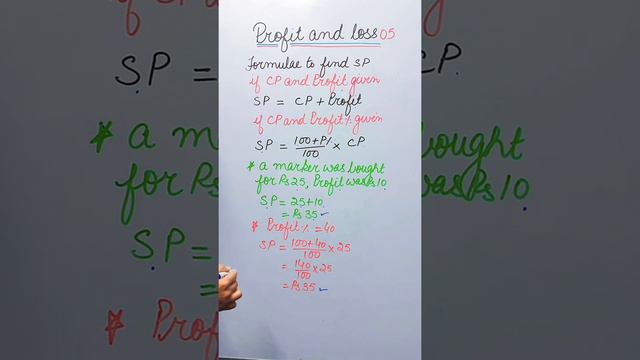 Profit and loss 05
Formulae to find SP
if CP and Profit given
SP = CP + Profit
if CP and Profit % given
SP = 100+P% / 100 × CP
* a marker was bought
for Rs 25, Profit was Rs 10
SP = 25+10
= Rs 35 ✓
* Profit % = 40
SP = 100+40 / 100 × 25
= 140 / 100 × 25
= Rs 35 ✓